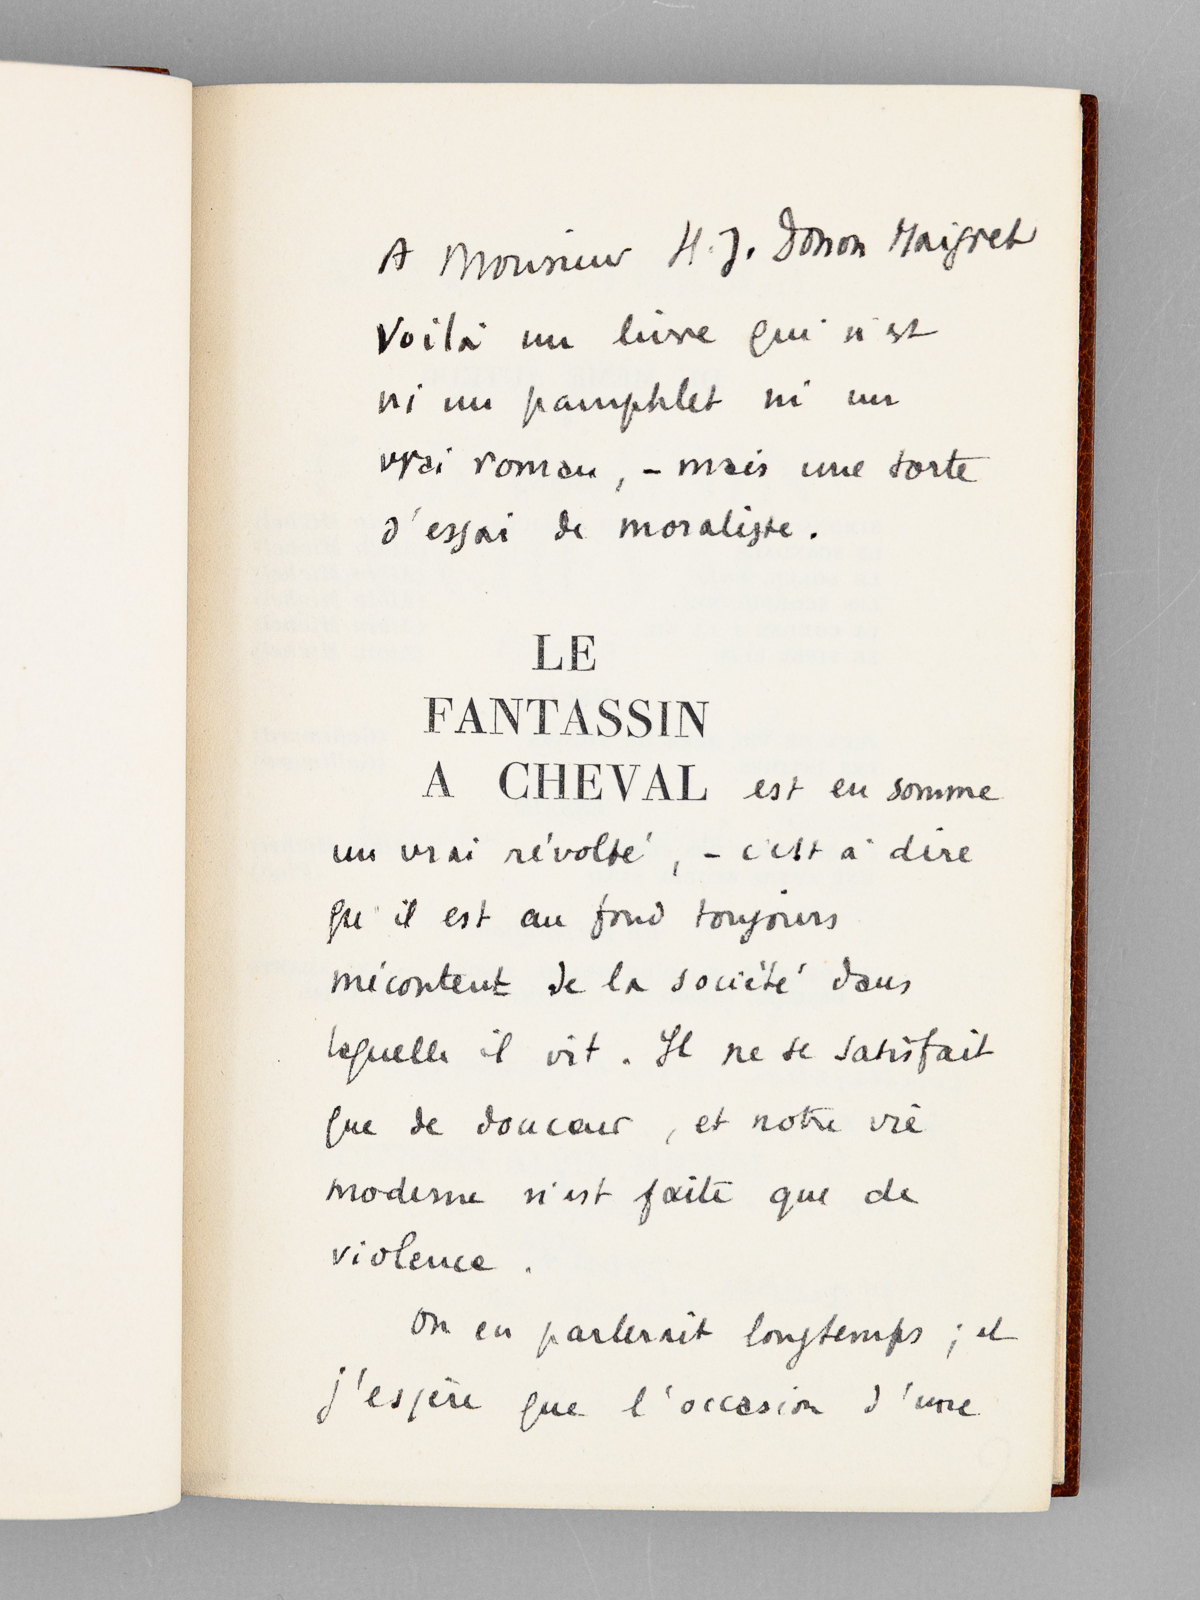 A Monsieur H. J. Donon Maigret
Voilà un livre qui n'est
ni un pamphlet ni un
vrai roman, – mais une sorte
d'essai de moraliste.
LE
FANTASSIN
A CHEVAL est en somme
un vrai révolté, – c'est à dire
qu'il est au fond toujours
mécontent de la société dans
laquelle il vit. Il ne se satisfait
que de douceur, et notre vie
moderne n'est faite que de
violence.
On en parlerait longtemps ; et
j'espère que l'occasion d'une